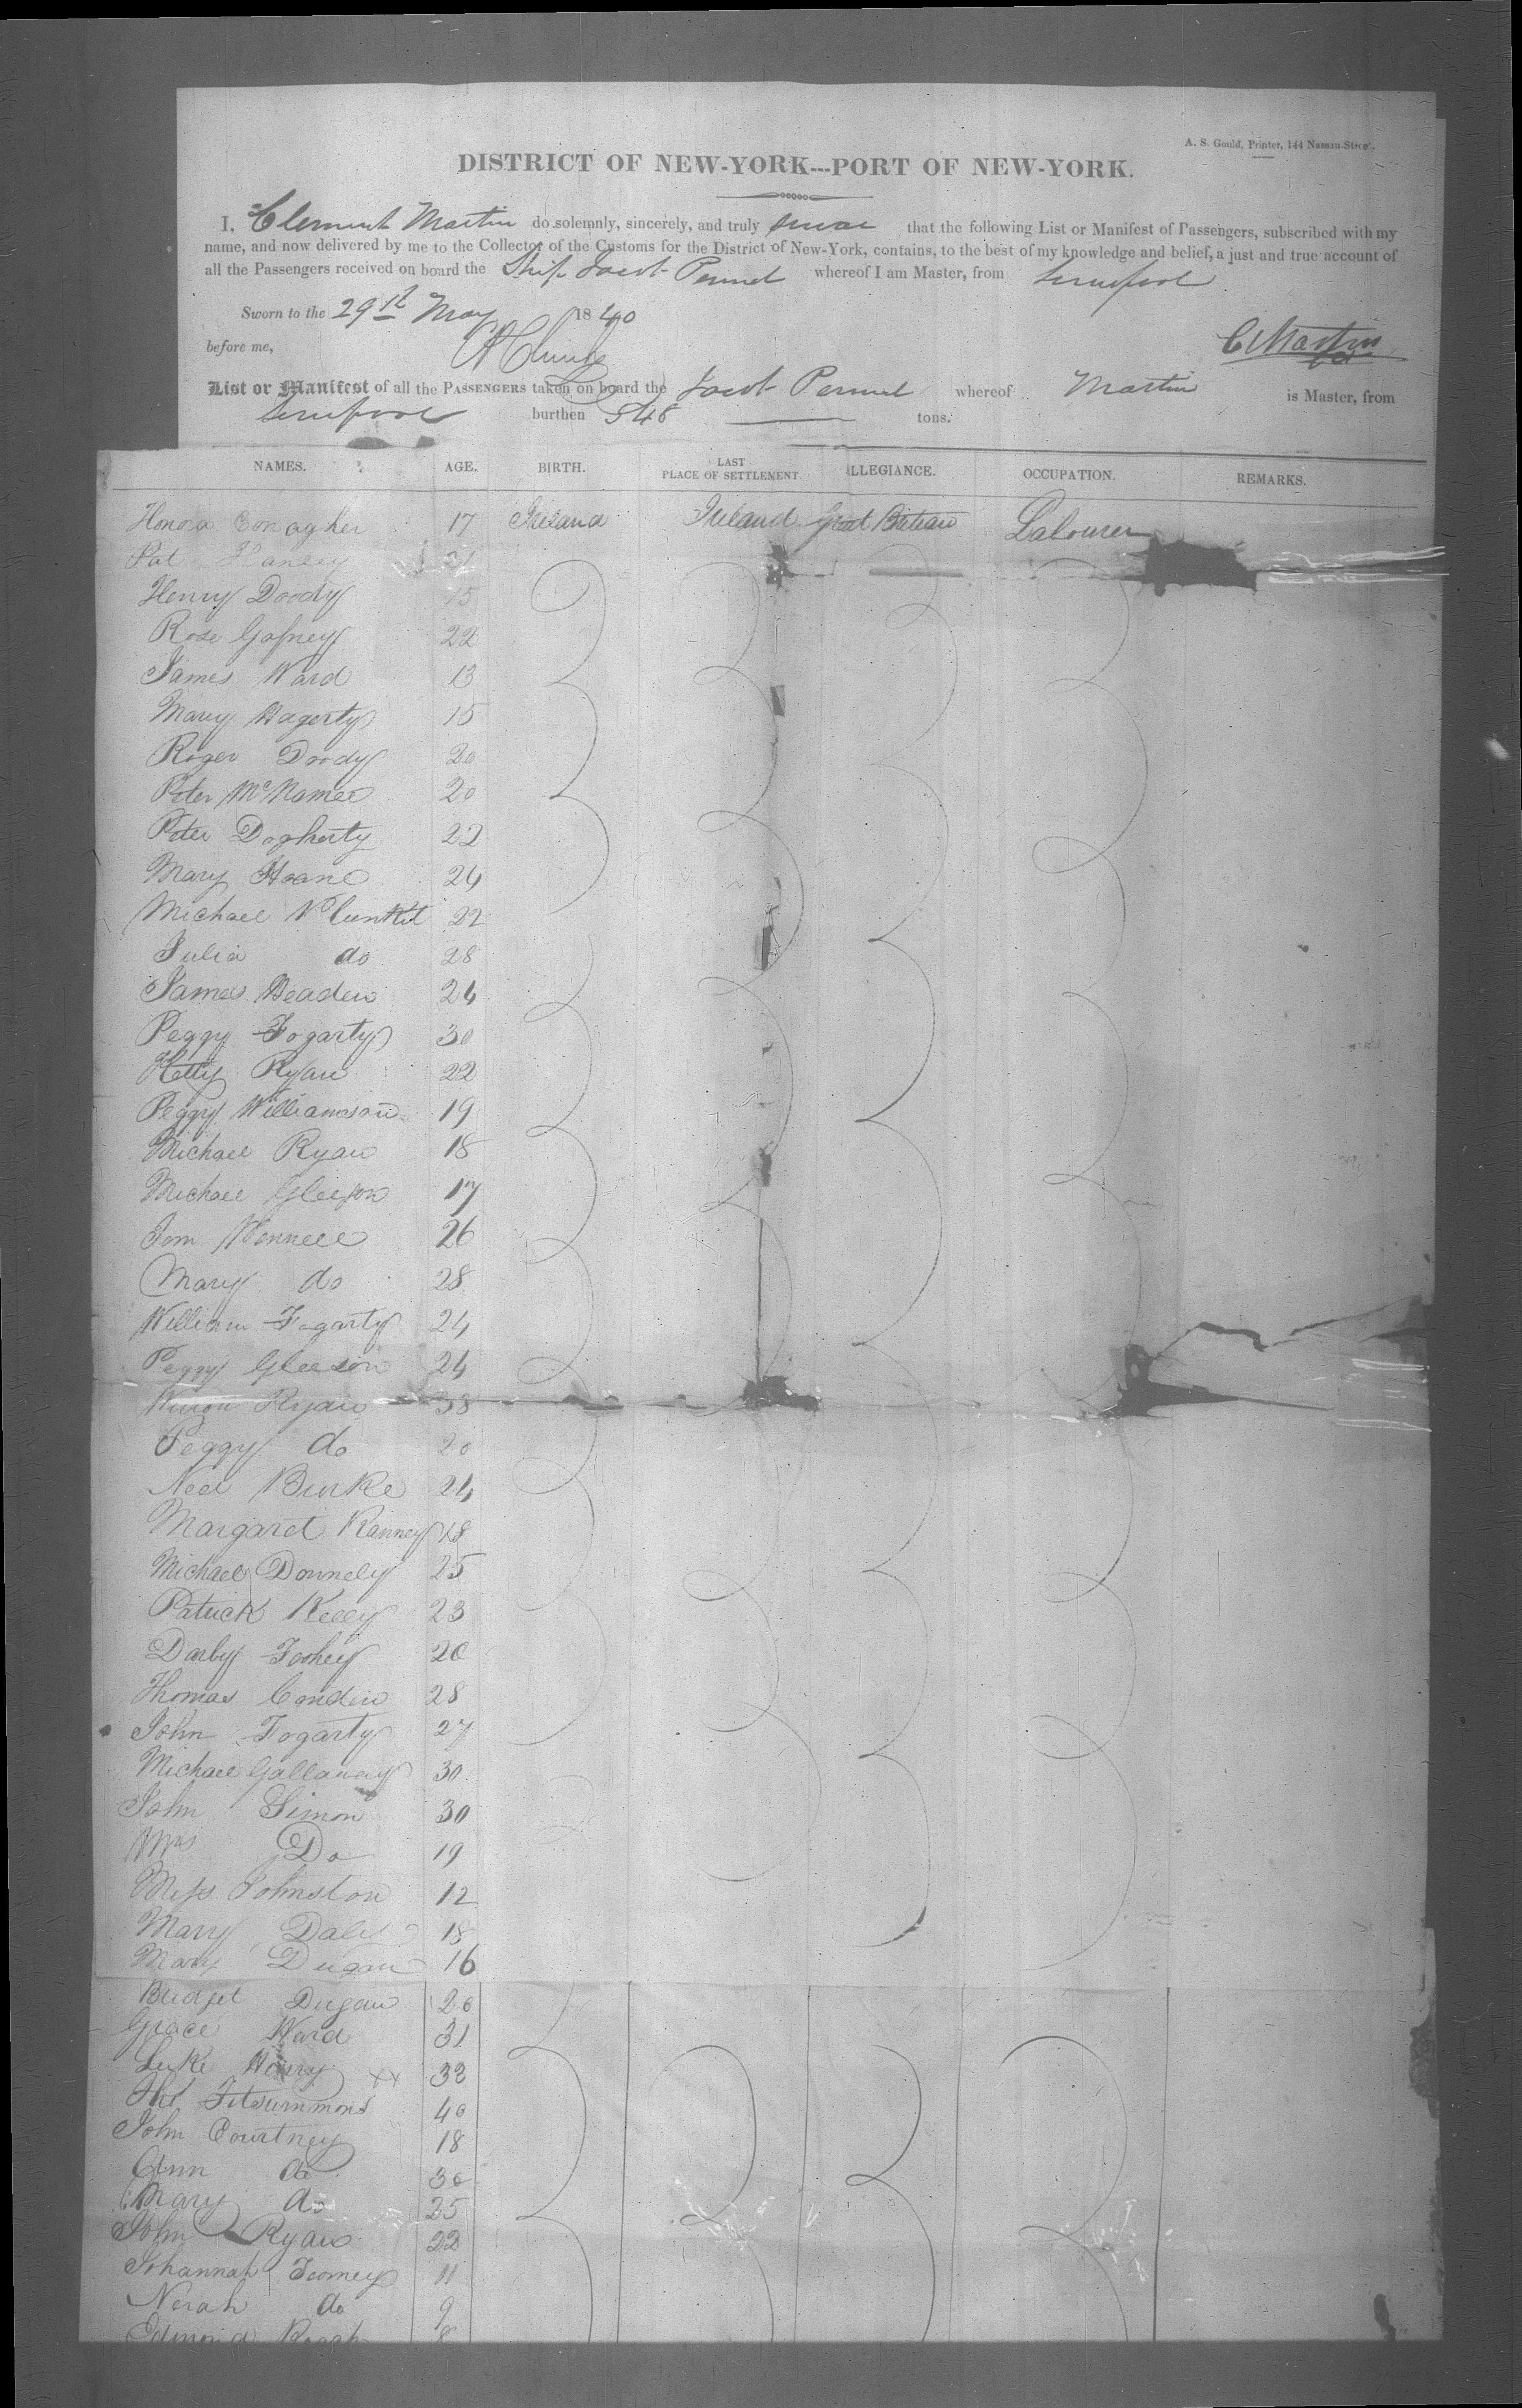 A. S. Gould, Printer, 144 Nassau-Street.
DISTRICT OF NEW-YORK---PORT OF NEW-YORK.
I, Clement Martin do solemnly, sincerely, and truly swear that the following List or Manifest of Passengers, subscribed with my
name, and now delivered by me to the Collector of the Customs for the District of New-York, contains, to the best of my knowledge and belief, a just and true account of
all the Passengers received on board the Ship Jacob Perund whereof I am Master, from Liverpool
Sworn to the 29th May 1840
before me, C Martin
List or Manifest of all the PASSENGERS taken on board the Jacob whereof Martin is Master, from
Liverpool burthen 548 tons.
NAMES. AGE. BIRTH. LAST PLACE OF SETTLEMENT. ALLEGIANCE. OCCUPATION. REMARKS.
Honora Conagher 17 Ireland Ireland Great Britain Labourer
Pat Hanley
Henry Doody 15
Rose Gafney 22
James Ward 13
Mary Hagerty 15
Roger Doody 20
Peter McNamee 20
Peter Dogherty 22
Mary Hoane 24
Michael 22
Julia do 28
James Headen 24
Peggy Fogarty 30
Kitty Ryan 22
Peggy Williamson 19
Michael Ryan 18
Michael Gleeson 17
Tom 26
Mary do 28
William Fogarty 24
Peggy Gleeson 24
Ryan 38
Peggy do 20
Ned Burke 24
Margaret Ranney 18
Michael Donnely 25
Patrick Kelly 23
Darby Foohey 20
Thomas Condin 28
John Fogarty 27
Michael Gallaway 30
John Simon 30
Mrs Do 19
Miss Johnston 12
Mary Daly 18
Mary Dugan 16
Bridget Dugan 20
Grace Ward 31
Luke Henry ++ 33
Thos Fitsummons 40
John Courtney 18
Ann do 30
Mary do 25
John Ryan 22
Johannah Toomey 11
Norah do 9
Edmond 8